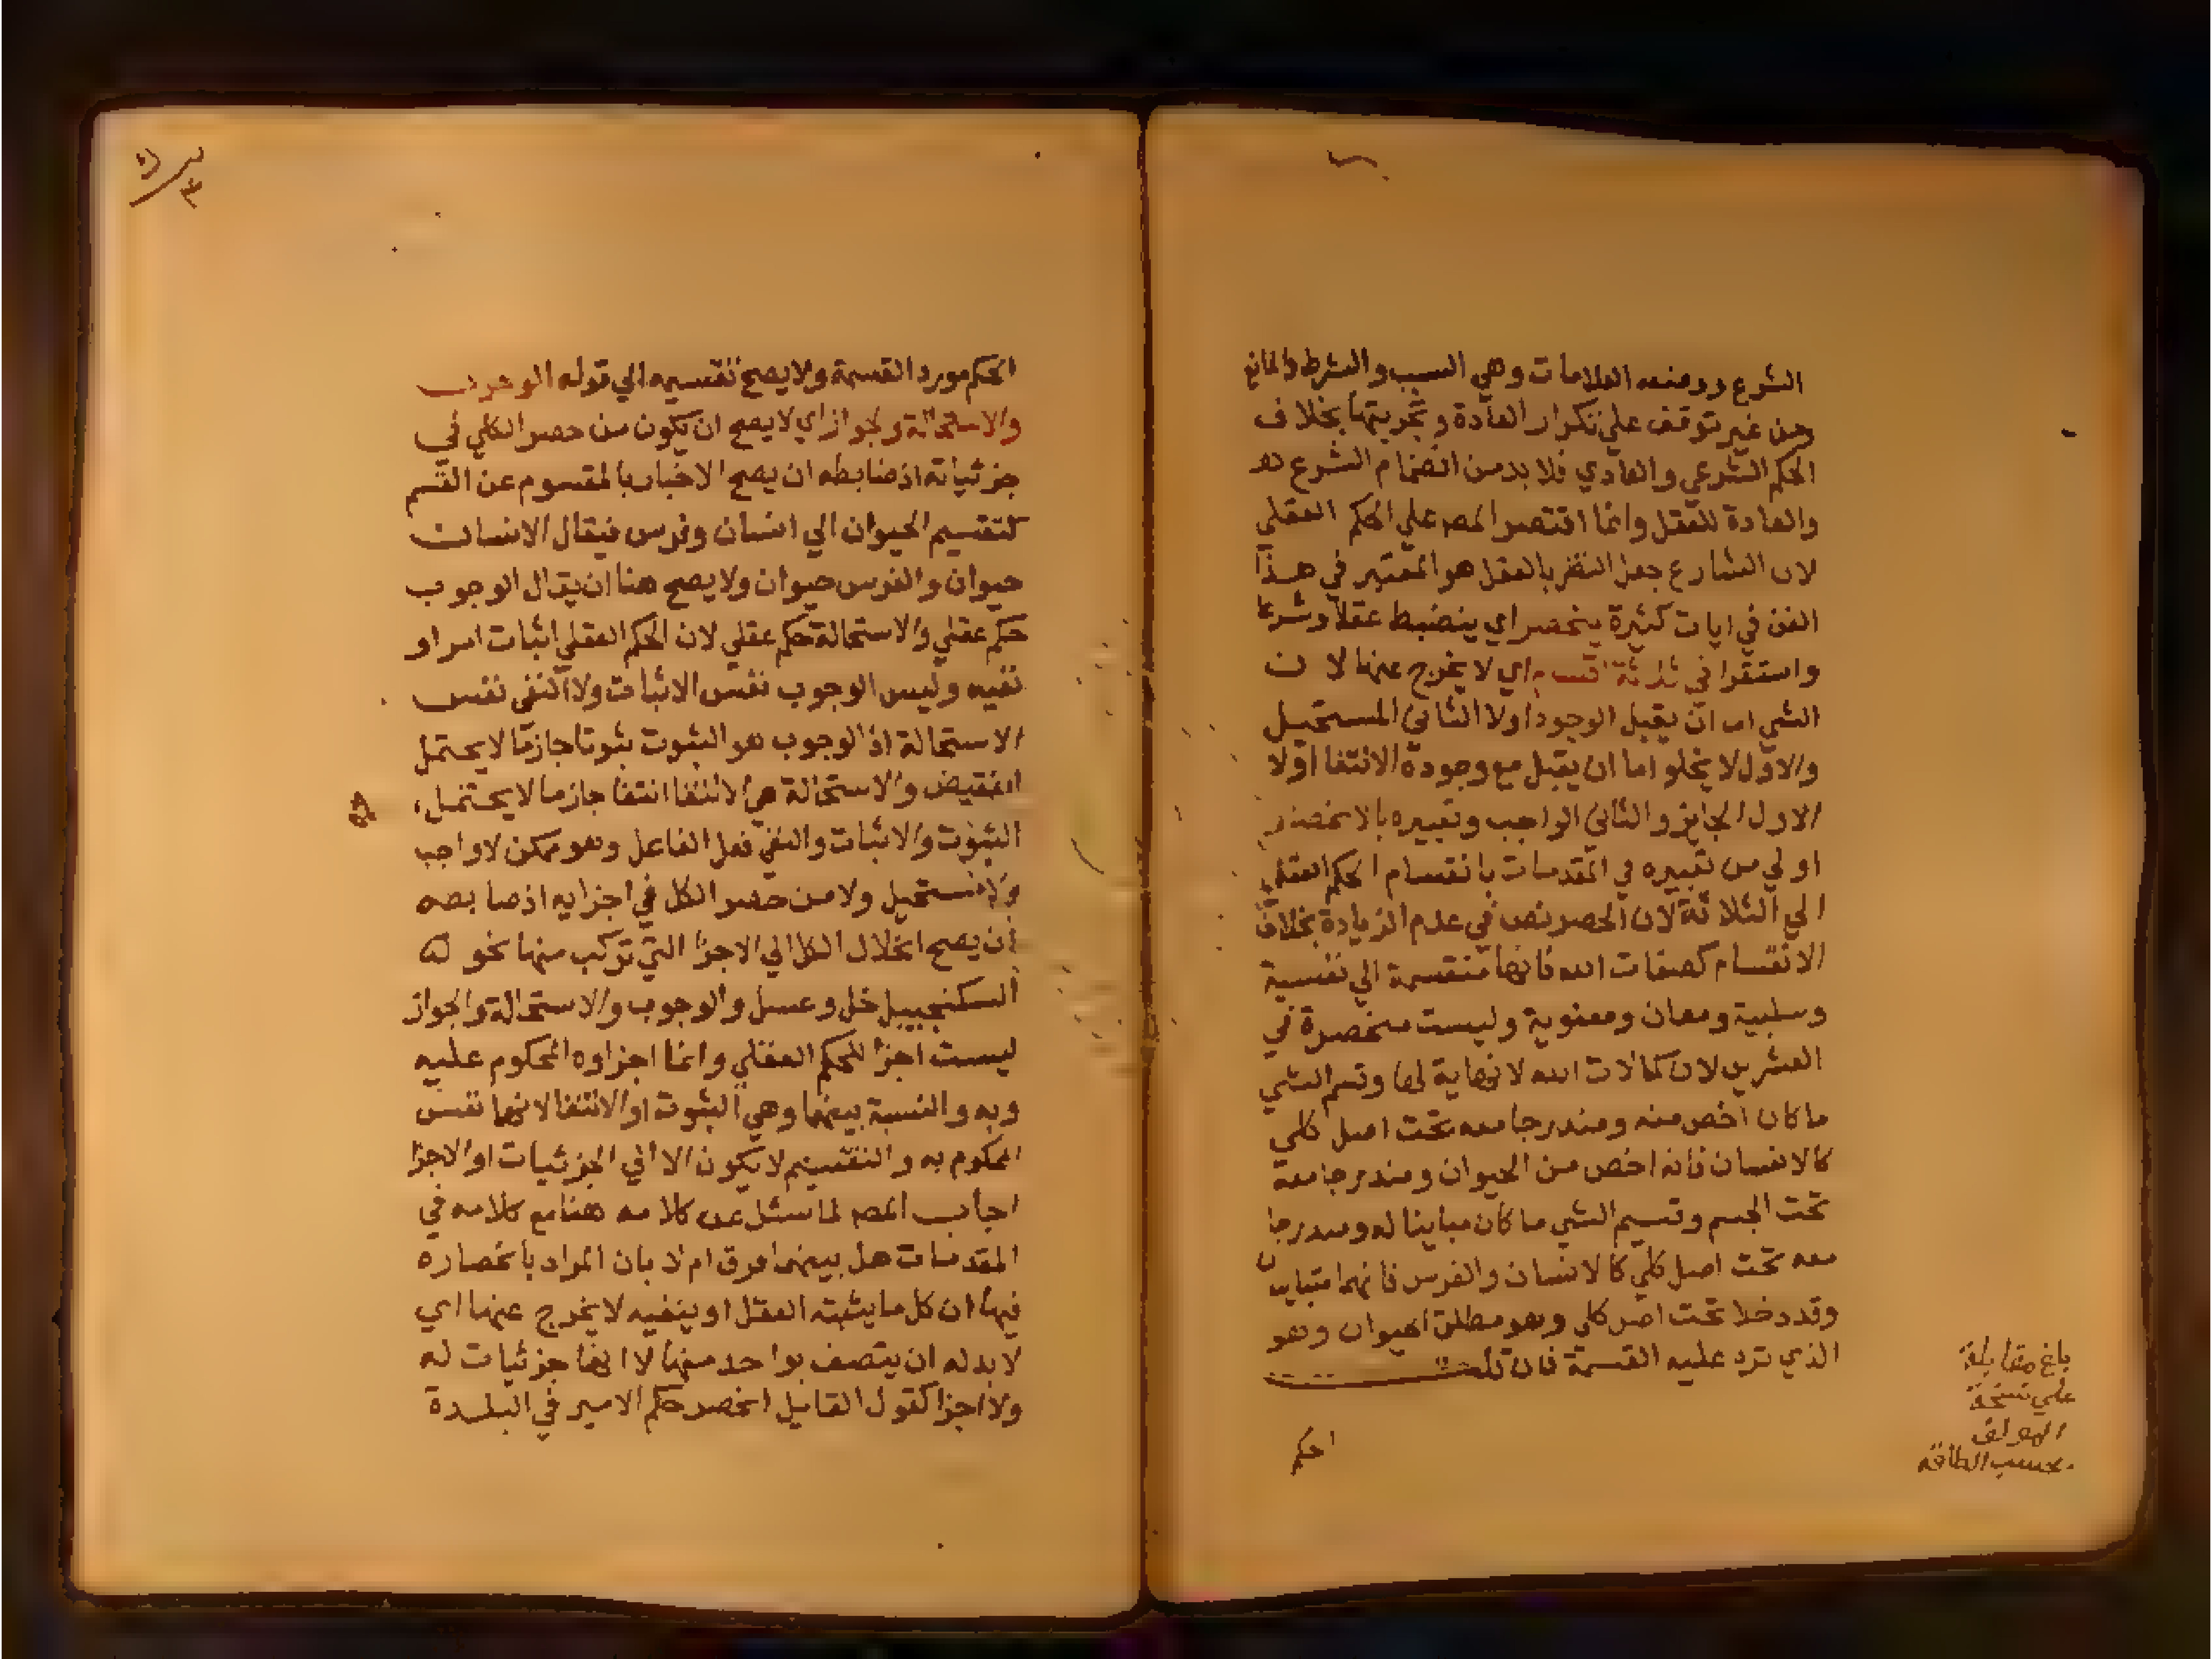 الشرع ومنه العلامات وهي السبب والشرط والمانع
ومن غير توقف علي تكرار العادة وتجربتها بخلاف
الحكم الشرعي والعادي فلا بد من انضمام الشرع
والعادة للعقل وانما اقتصر المصه علي الحكم العقلي
لان الشارع جعل النظر بالعقل هو المعتبر في هذا
الفن في ايات كثيرة ينحصر اي ينضبط عقلا وشرعا
واستقرا في ثلاثة اقسام اي لا يخرج عنها لان
الشي اما ان يقبل الوجود اولا الثاني المستحيل
والاول لا يخلو اما ان يقبل مع وجوده الانتفا اولا
الاول الجايز والثاني الواجب وتعبيره بالانحصار
اولي من تعبيره في المقدمات بانقسام الحكم العقلي
الي الثلاثة لان الحصر نص في عدم الزيادة بخلاف
الانقسام كصفات الله فانها منقسمة الي نفسية
وسلبية ومعان ومعنوية وليست منحصرة في
العشرين لان كمالات الله لا نهاية لها وقسم الشي
ما كان اخص منه ومندرجا معه تحت اصل كلي
كالانسان فانه اخص من الحيوان ومندرجا معه
تحت الجسم وقسيم الشي ما كان مباينا له ومندرجا
معه تحت اصل كلي كالانسان والفرس فانهما متباينان
وقد دخلا تحت اصل كلي وهو مطلق الحيوان وهو
الذي ترد عليه القسمة فان قلت
الحكم
بلغ مقابلة
علي نسخة
المولف
بحسب الطاقه
الحكم مورد القسمة ولا يصح تقسيمه الي قوله الوجوب
والاستحالة والجواز اي لا يصح ان يكون من حصر الكلي في
جزئياته اذ ضابطه ان يصح الاخبار بالمقسوم عن القسم
كتقسيم الحيوان الي انسان وفرس فيقال الانسان
حيوان والفرس حيوان ولا يصح هنا ان يقال الوجوب
حكم عقلي والاستحالة حكم عقلي لان الحكم العقلي اثبات امر او
نفيه وليس الوجوب نفس الاثبات ولا النفي نفس
الاستحالة اذ الوجوب هو الثبوت ثبوتا جازما لا يحتمل
النقيض والاستحالة هي الانتفا انتفا جازما لا يحتمل
الثبوت والاثبات والنفي فعل الفاعل وهو ممكن لا واجب
ولا مستحيل ولا من حصر الكل في اجزايه اذ ضابطه
ان يصح انحلال الكل الي الاجزا التي تركب منها نحو
السكنجبيل خل وعسل والوجوب والاستحالة والجواز
ليست اجزا للحكم العقلي وانما اجزاوه المحكوم عليه
وبه والنسبة بينهما وهي الثبوت او الانتفا لانها نفس
المحكوم به والتقسيم لا يكون الا الي الجزئيات او الاجزا
اجاب المصه لما سئل عن كلامه هنا مع كلامه في
المقدمات هل بينهما فرق ام لا بان المراد بانحصاره
فيها ان كل ما يثبته العقل او ينفيه لا يخرج عنها اي
لا بد له ان يتصف بواحد منها لا انها جزئيات له
ولا اجزا كقول القايل انحصر حكم الامير في البلدة